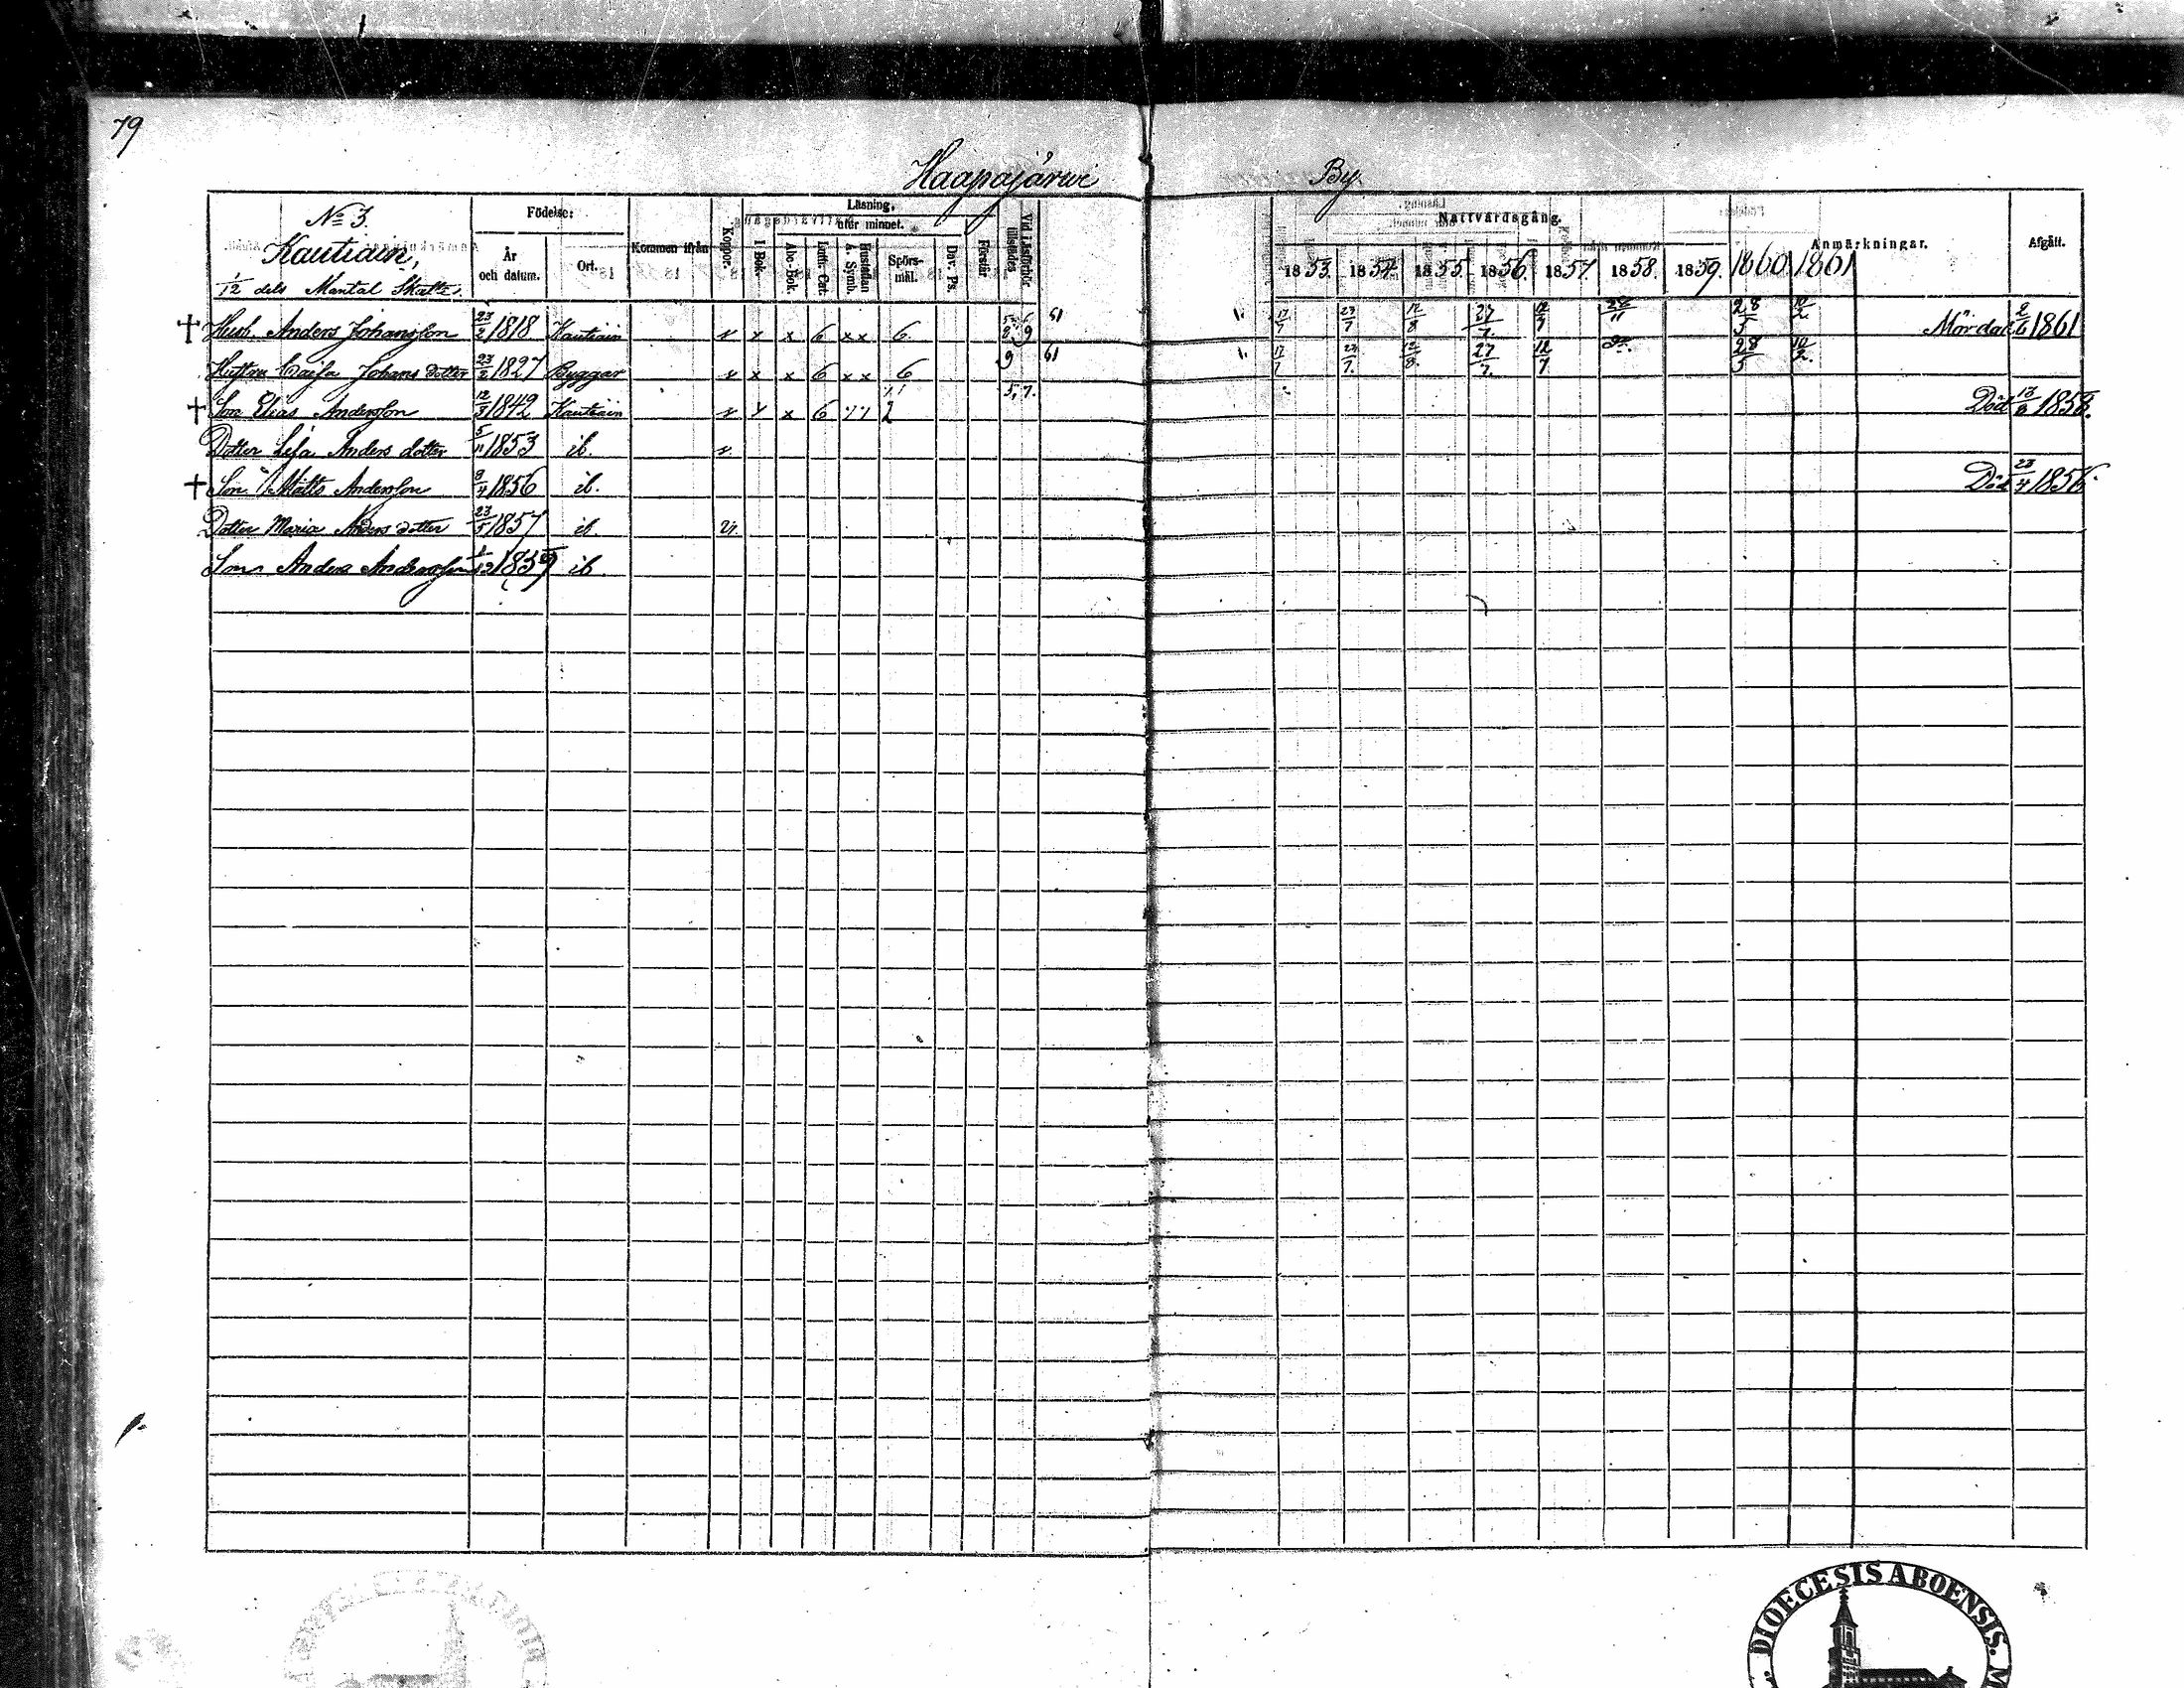 79
Haapajärwi By.
No 3.
Kautiain,
1/2 dels Mantal Skatte.
Födelse:
År och datum.
Ort.
Kommen ifrån
Koppor.
Läsning,
I Bok.
utur minnet.
Abc-Bok.
Luth. Cat.
Hustaflan A. Symb.
Spörsmål.
Dav. Ps.
Förstår
Vid Läseförhör tillstädes
Nattvardsgång.
1853. 1854. 1855. 1856. 1857. 1858. 1859. 1860 1861
Anmärkningar.
Afgått.
† Husb. Anders Johansson 23/2 1818 Kautiain x x 6 xx 6. 61 17/7 23/7 12/8 27/7. 12/7 28/5 10/2 Mördad 2/6 1861
Hustru Caisa Johans dotter 23/2 1827 Byggar x x x 6 xx 6 9 61 23/7. 12/8. 27/7. 12/7 28/5 10/2.
† Son Elias Andersson 12/3 1842 Kautiain x 6 5,7. Död 13/8 1858.
Dotter Lisa Anders dotter 5/11 1853 ib.
† Son Matts Andersson 8/4 1856 ib. Död 23/4 1856.
Dotter Maria Anders dotter 23/5 1857 ib.
Son Anders Andersson 1/12 1859 ib.
DIOECESIS ABOENSIS.